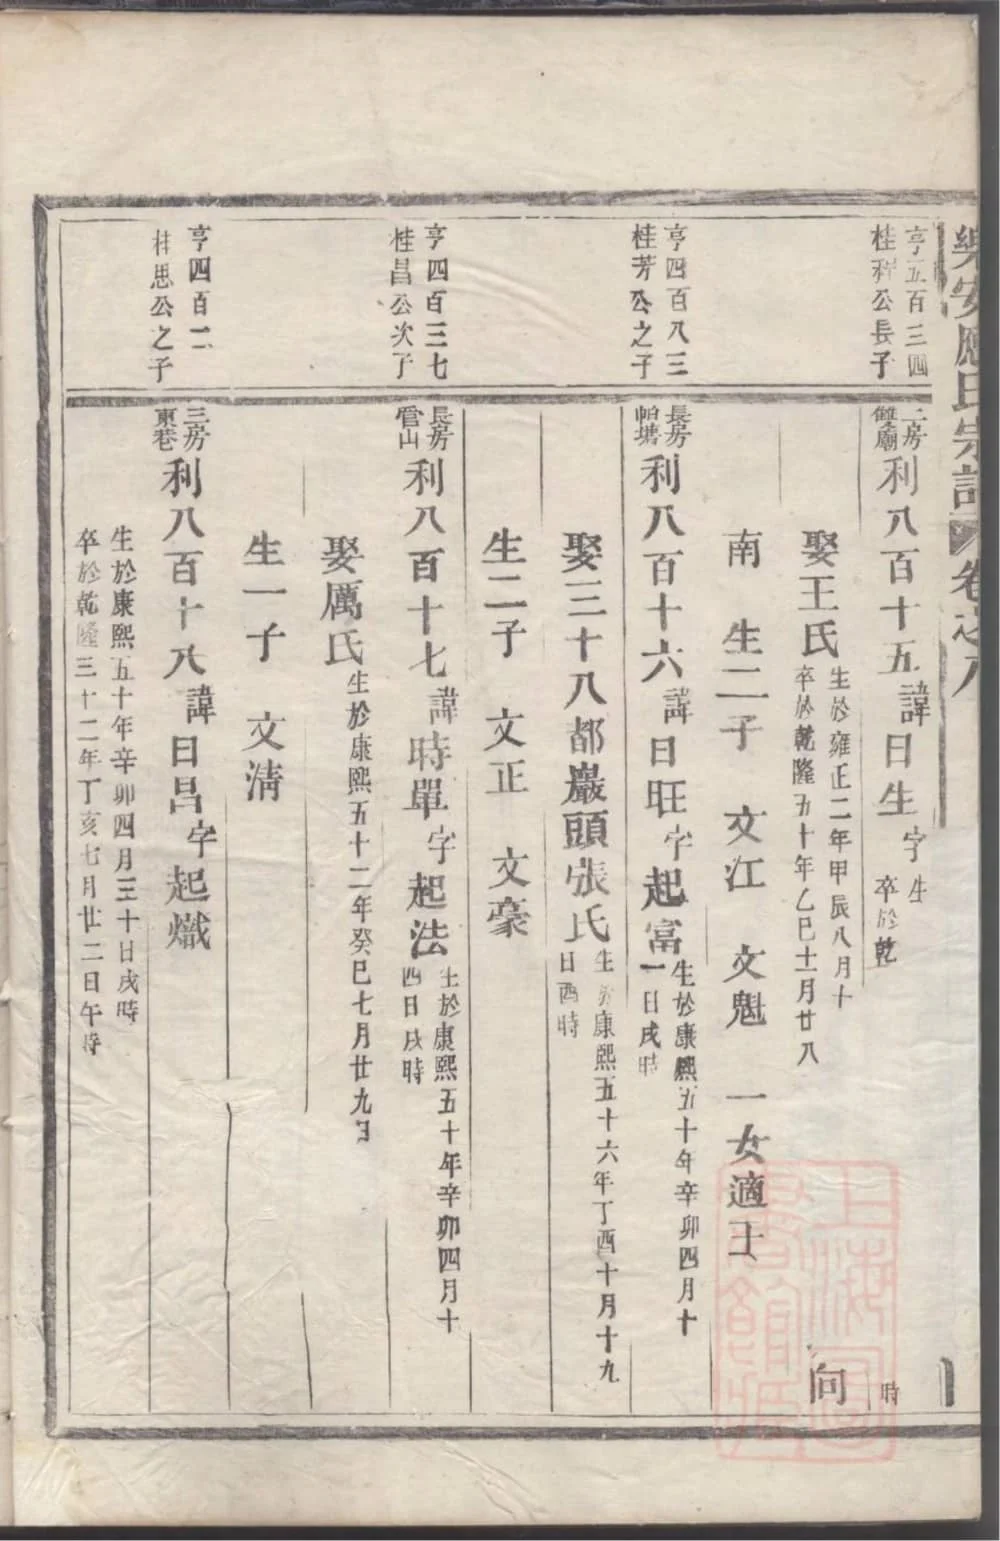 樂安應氏宗譜 卷之八
亨五百三四
桂程公長子
二房
雙廟
利八百十五 諱日生 字
生
卒於乾
時
娶王氏
生於雍正二年甲辰八月十
卒於乾隆五十年乙巳十一月廿八
向
南 生二子 文江 文魁 一女適王
亨四百八三
桂芳公之子
長房
帕塘
利八百十六 諱日旺 字起富
生於康熙五十年辛卯四月十
一日戌時
娶三十八都巖頭張氏
生於康熙五十六年丁酉十月十九
日酉時
生二子 文正 文豪
亨四百三七
桂昌公次子
長房
官山
利八百十七 諱時單 字起法
生於康熙五十年辛卯四月十
四日戌時
娶厲氏
生於康熙五十二年癸巳七月廿九日
生一子 文清
亨四百一二
桂思公之子
三房
東巷
利八百十八 諱日昌 字起熾
生於康熙五十年辛卯四月三十日戌時
卒於乾隆三十二年丁亥七月廿二日午時
上海圖
書館藏